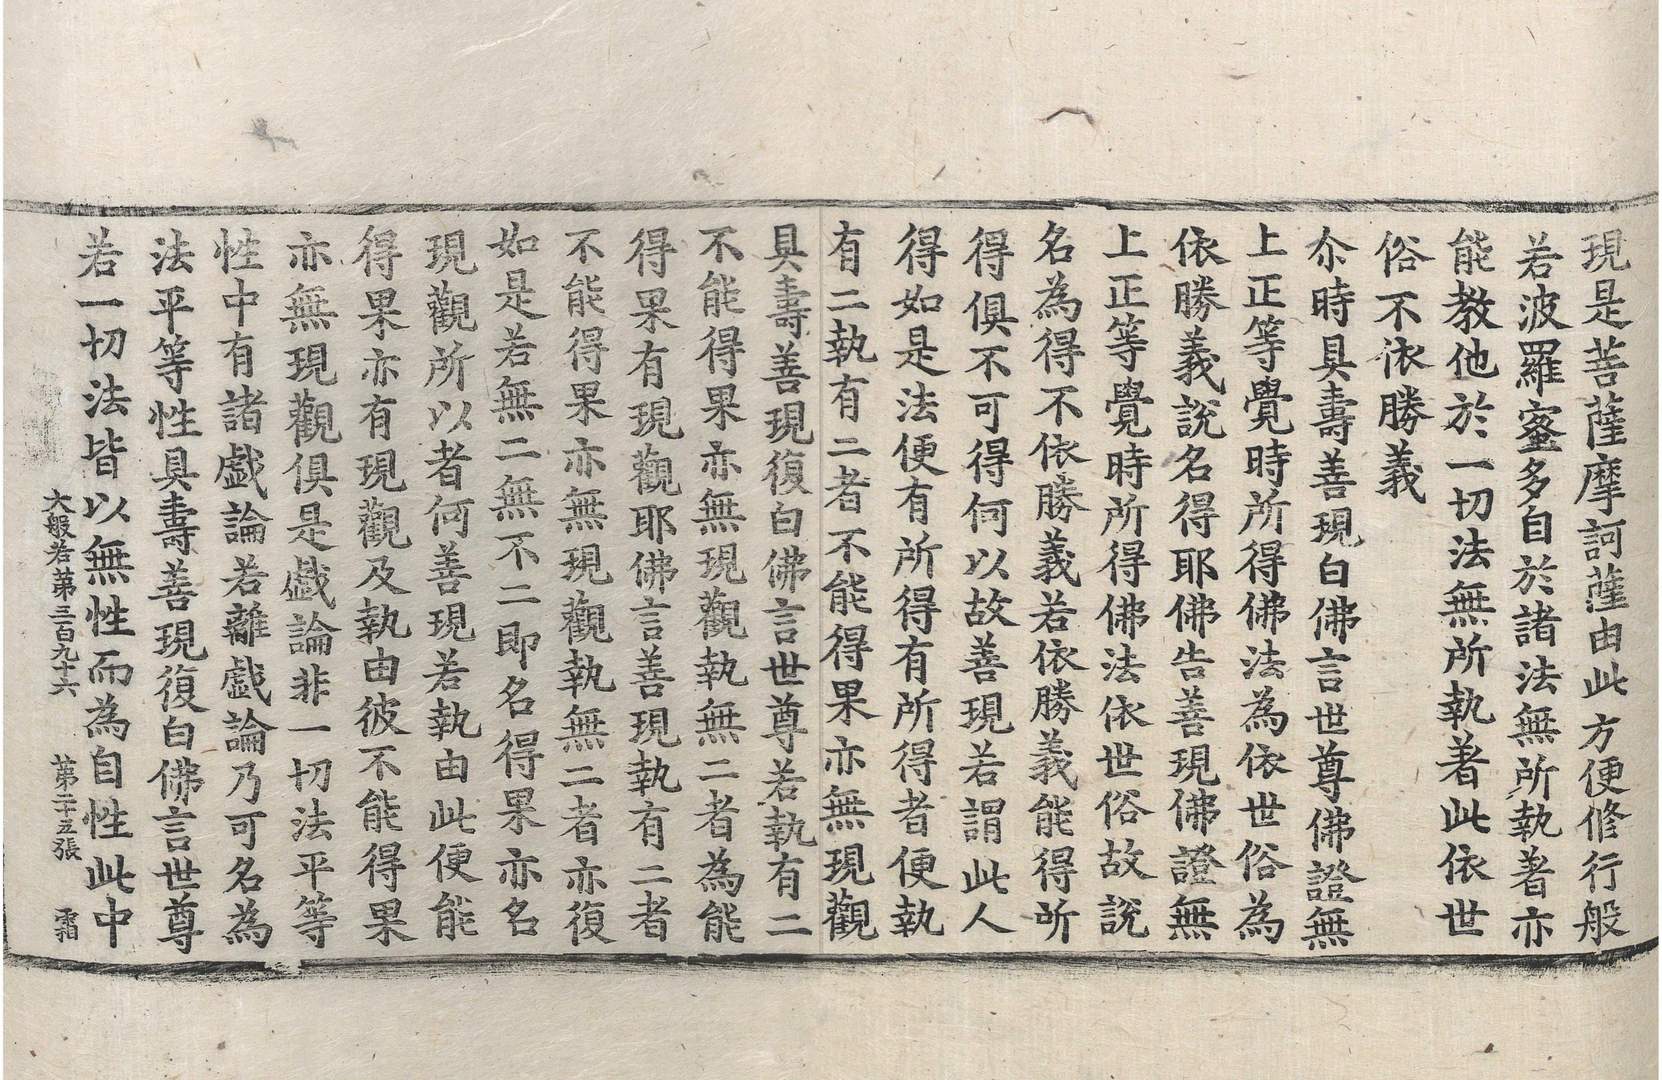 現是菩薩摩訶薩由此方便修行般
若波羅蜜多自於諸法無所執著亦
能教他於一切法無所執著此依世
俗不依勝義
尒時具壽善現白佛言世尊佛證無
上正等覺時所得佛法為依世俗為
依勝義說名得耶佛告善現佛證無
上正等覺時所得佛法依世俗故說
名為得不依勝義若依勝義能得所
得俱不可得何以故善現若謂此人
得如是法便有所得有所得者便執
有二執有二者不能得果亦無現觀
具壽善現復白佛言世尊若執有二
不能得果亦無現觀執無二者為能
得果有現觀耶佛言善現執有二者
不能得果亦無現觀執無二者亦復
如是若無二無不二即名得果亦名
現觀所以者何善現若執由此便能
得果亦有現觀及執由彼不能得果
亦無現觀俱是戲論非一切法平等
性中有諸戲論若離戲論乃可名為
法平等性具壽善現復白佛言世尊
若一切法皆以無性而為自性此中
大般若第三百九十六　第二十五張　霜